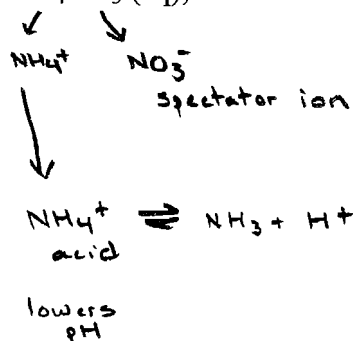 NH₄⁺ NO₃⁻
spectator ion
NH₄⁺ ⇌ NH₃ + H⁺
acid
lowers
pH